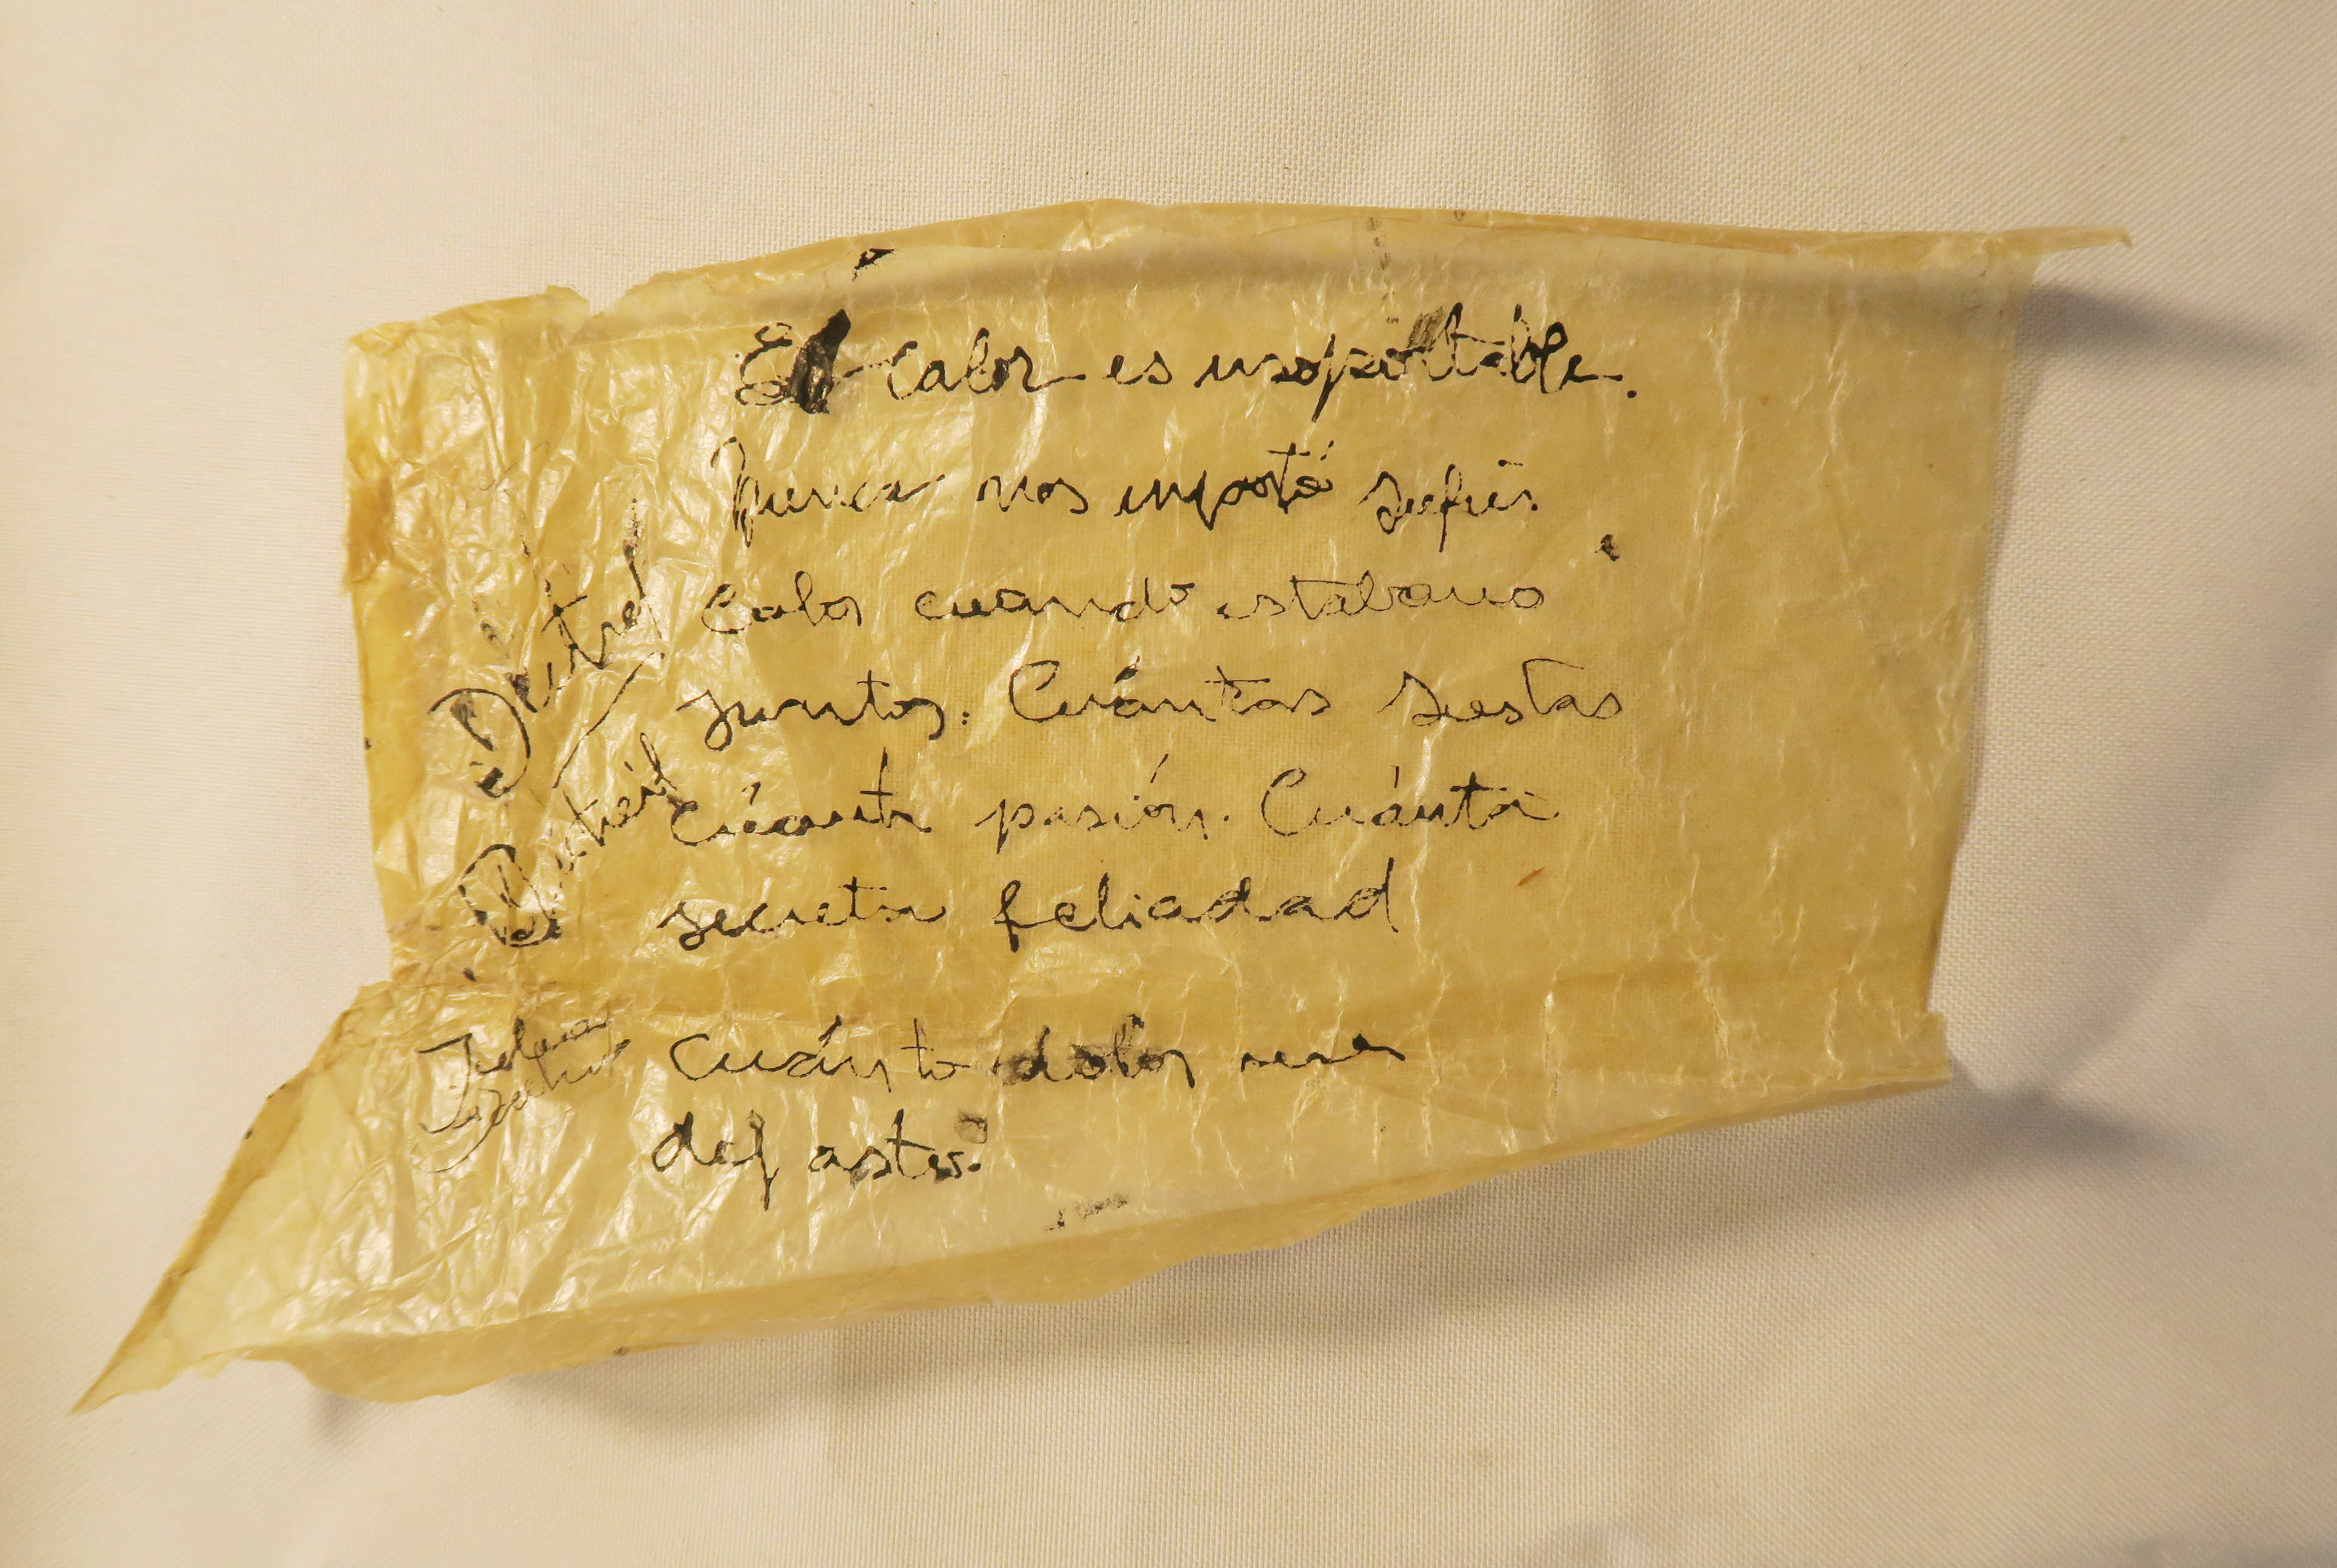 El calor es insoportable.
Nunca nos importó sufrir
calor cuando estabamo
juntos. Cuántas siestas
Cúanta pasión. Cuánta
secreta felicidad
Cuánto dolor
dejaste.